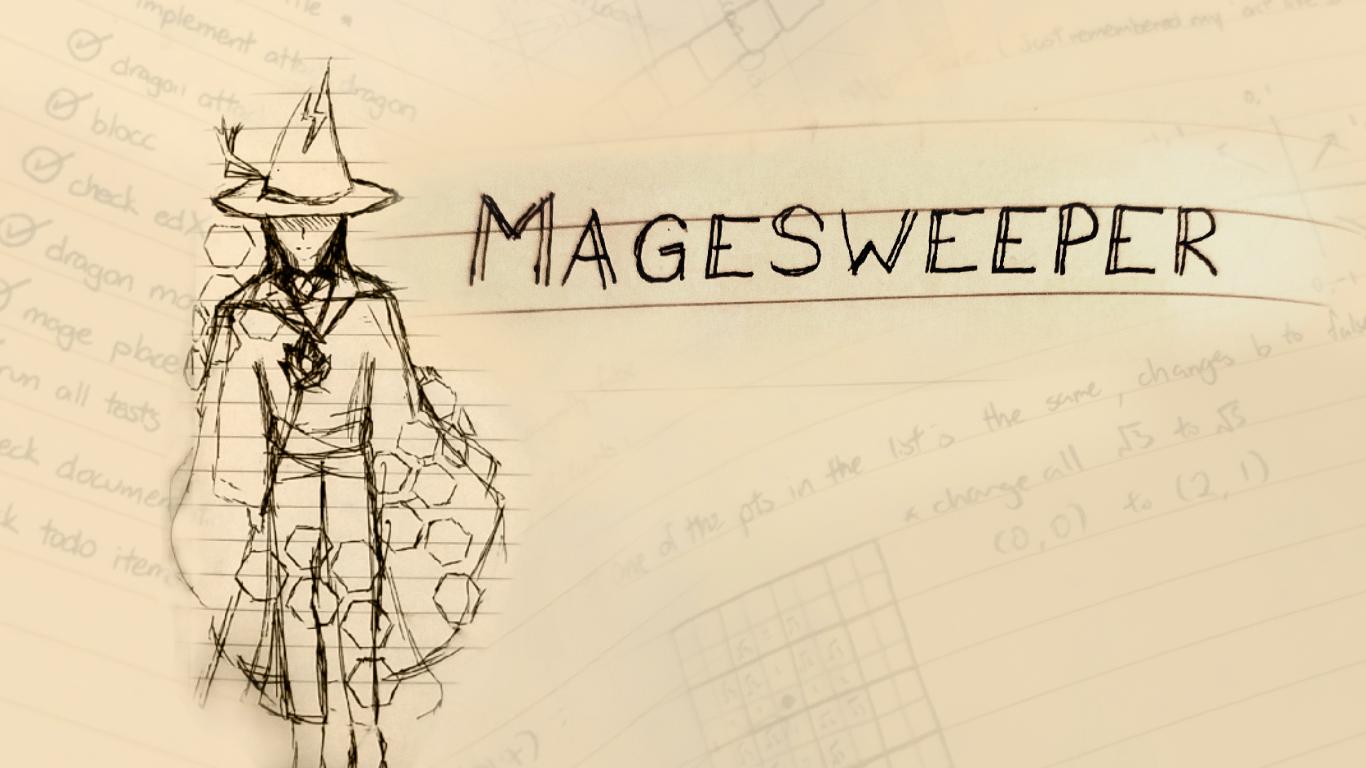 implement atta dragon
dragon atta
blocc
check edX
dragon mo
mage place
run all tasts
eck documen
k todo item
(Just remembered my
MAGESWEEPER
one of the pts in the list is the same, changes b to fals
* change all √5 to √5
(0,0) to (2,1)